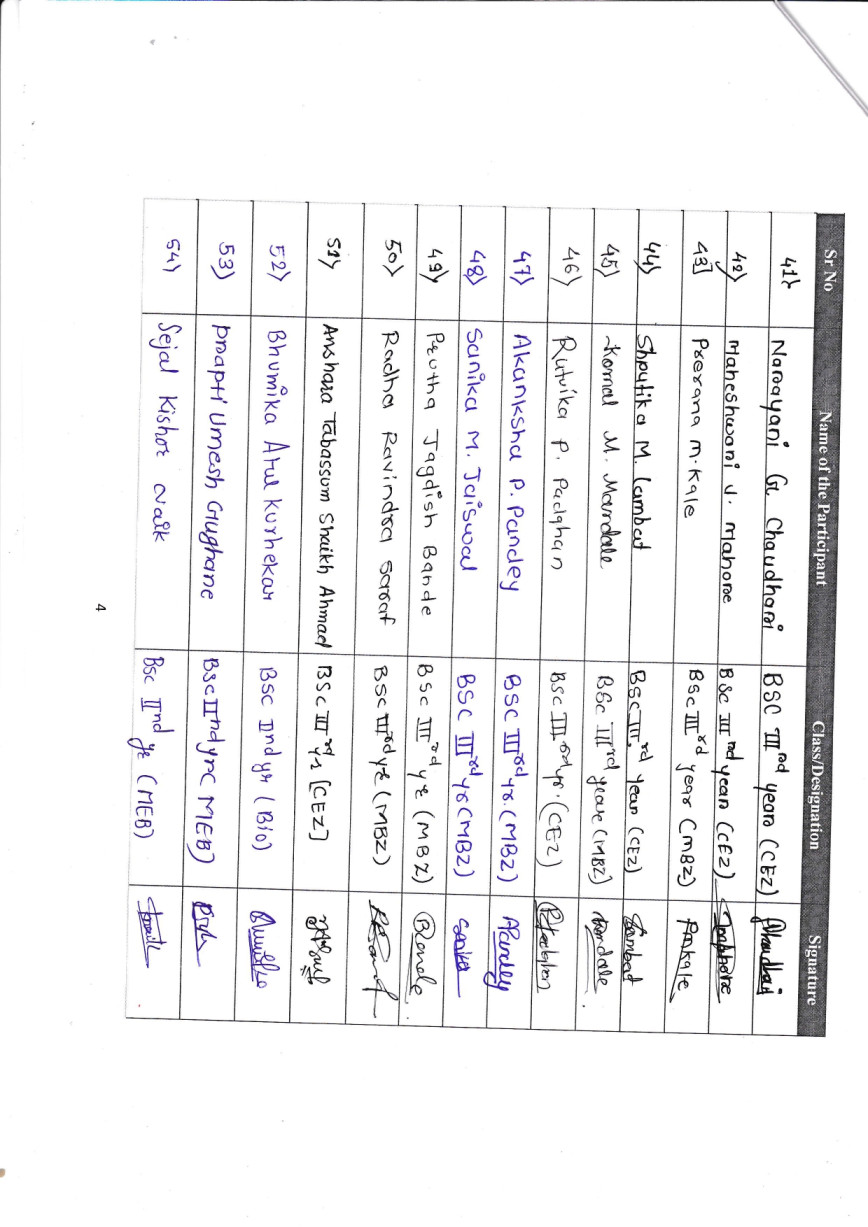 Sr No Name of the Participant Class/Designation Signature
41) Narayani G. Chaudhari BSC III rd year (CEZ)
42) Maheshwari J. Mahore BSC III rd year (CEZ)
43] Prerana M. Kale BSC III rd year (MBZ) PMKale
44) Shrutika M. Lambat BSC III rd year (CEZ) Lambat
45) Komal M. Mandale BSC III rd year (MBZ) Mandale
46) Rutvika P. Padghan BSC III rd yr. (CEZ)
47) Akanksha P. Pandey BSC III rd yr. (MBZ) APandey
48) Sanika M. Jaiswal BSC III rd yr (MBZ) Sanika
49) Prutha Jagdish Bande BSC III rd yr (MBZ) Bande
50) Radha Ravindra Saraf BSC III rd yr (MBZ)
51) Anshara Tabassum Shaikh Ahmad BSC III rd yr [CEZ]
52) Bhumika Atul Kurhekar BSC IInd yr (Bio)
53) Praapti Umesh Ghughane BSC IInd yr (MEB)
54) Sejal Kishor Naik BSC IInd yr (MEB)
4